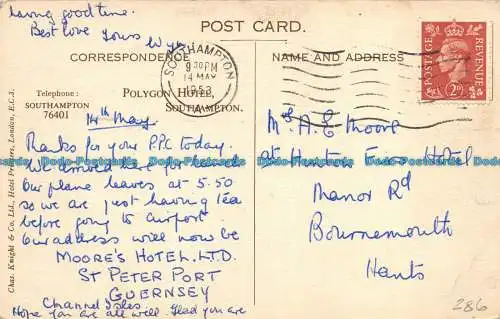 having good time.
Best love Yours
POST CARD.
CORRESPONDENCE
NAME AND ADDRESS
SOUTHAMPTON
9.30 PM
14 MAY
1953
A
POSTAGE
REVENUE
2D
Telephone :
SOUTHAMPTON
76401
POLYGON HOTEL,
SOUTHAMPTON.
14th May
Thanks for your P.P.C today.
We arrived here for lunch
Our plane leaves at 5.50
so we are just having tea
before going to airport.
Our address will now be
MOORE'S HOTEL. LTD.
ST PETER PORT
GUERNSEY
Channel Isles
Hope you are all well. Glad you are
Mrs A.E Moore
at Hotel
Manor Rd
Bournemouth
Hants
286
Chas. Knight & Co. Ltd., Hotel Printers, London, E.C.3.
Dodo-Postcards Dodo-Postcards Dodo-Postcards Dodo-Postcards